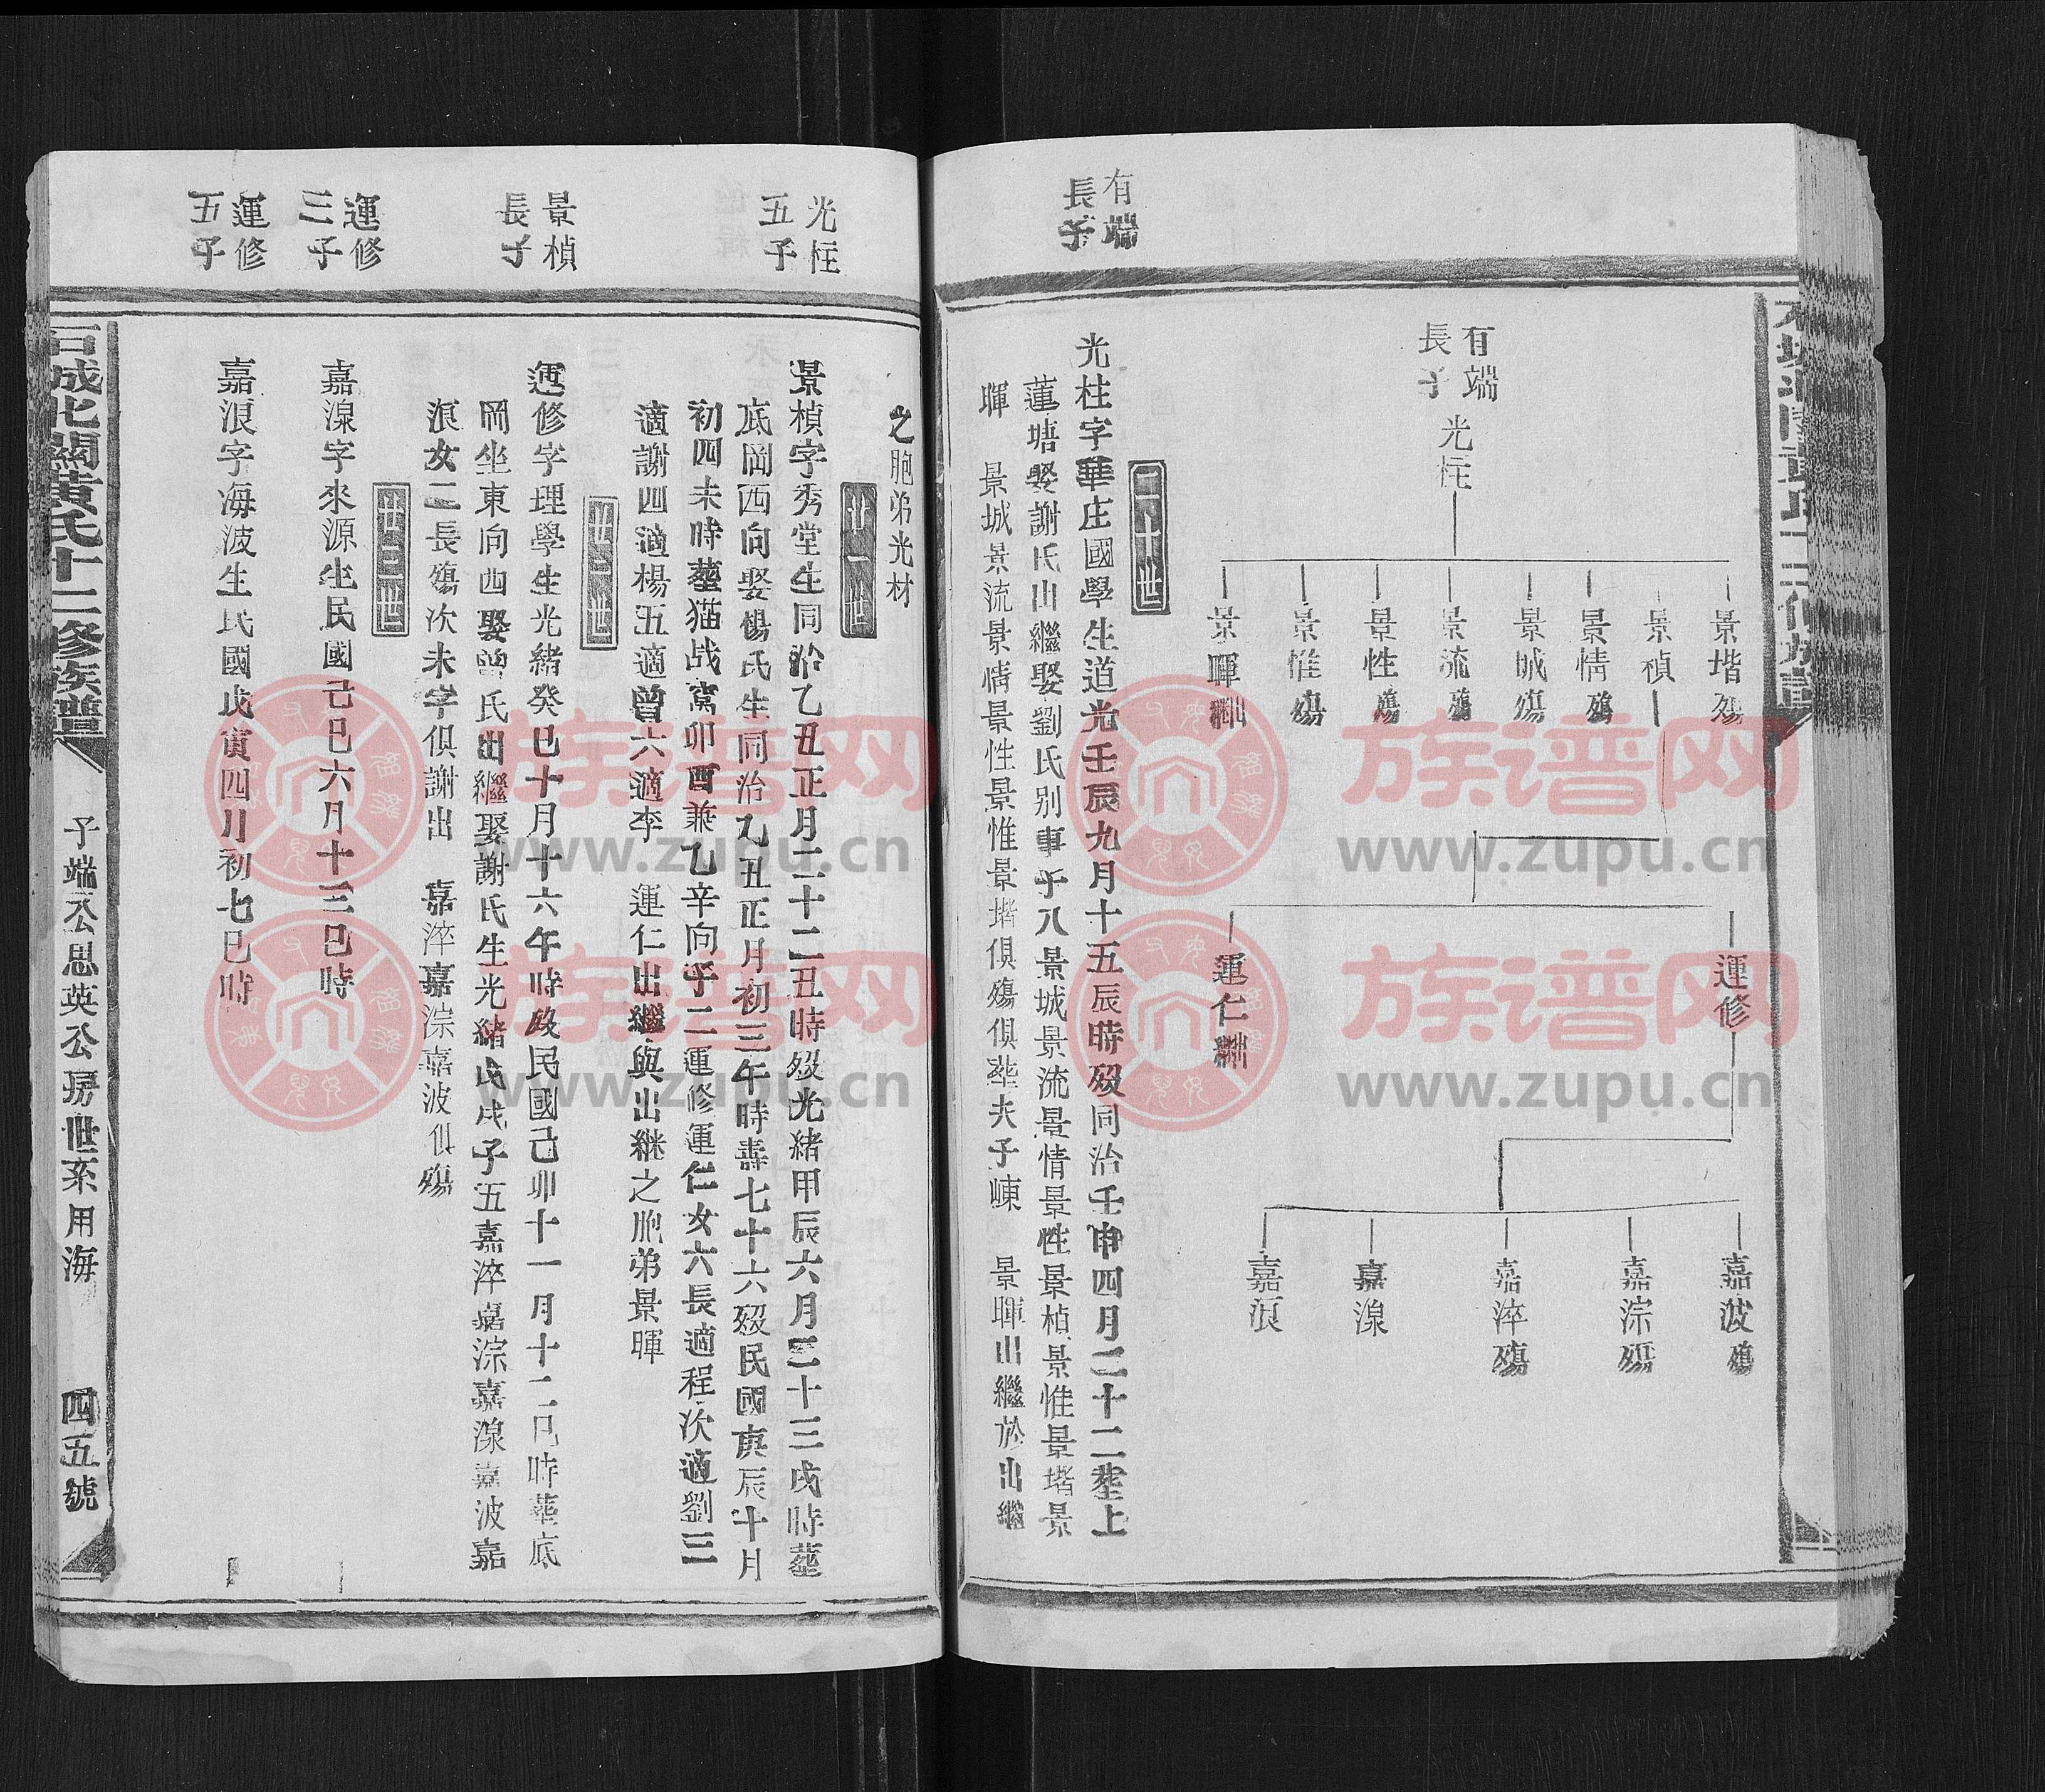 有端
長子
有端
長子
光柱
景堦殤
景禎
景情殤
景城殤
景流殤
景性殤
景惟殤
景暉出繼
運修
運仁出繼
嘉波殤
嘉淙殤
嘉淬殤
嘉湶
嘉浪
二十世
光柱字華庄國學生道光壬辰九月十五辰時歿同治壬申四月二十二塟上
蓮塘娶謝氏出繼娶劉氏别事子八景城景流景情景性景楨景惟景堦景
暉 景城景流景情景性景惟景堦俱殤俱塟夫子崠 景暉出繼於出繼
光柱
五子
景楨
長子
運修
三子
運修
五子
之胞弟光材
廿一世
景楨字秀堂生同治乙丑正月二十二丑時歿光緒甲辰六月二十三戌時塟
底岡西向娶楊氏生同治乙丑正月初三午時壽七十六歿民國庚辰十月
初四未時塟猫战窩卯酉兼乙辛向子二運修運仁女六長適程次適劉三
適謝四適楊五適曾六適李 運仁出繼與出継之胞弟景暉
廿二世
運修字理學生光緒癸巳十月十六午時歿民國己卯十一月十二巳時塟底
岡坐東向酉娶曾氏出繼娶謝氏生光緒戊戌子五嘉淬嘉淙嘉湶嘉波嘉
浪女二長殤次未字俱謝出 嘉淬嘉淙嘉波俱殤
廿三世
嘉湶字來源生民國己巳六月十三巳時
嘉浪字海波生民國戊寅四月初七巳時
石城北關黄氏十二修族譜
子端公思英公房世系用海
四五號
族谱网
www.zupu.cn
族谱网
www.zupu.cn
族谱网
www.zupu.cn
族谱网
www.zupu.cn